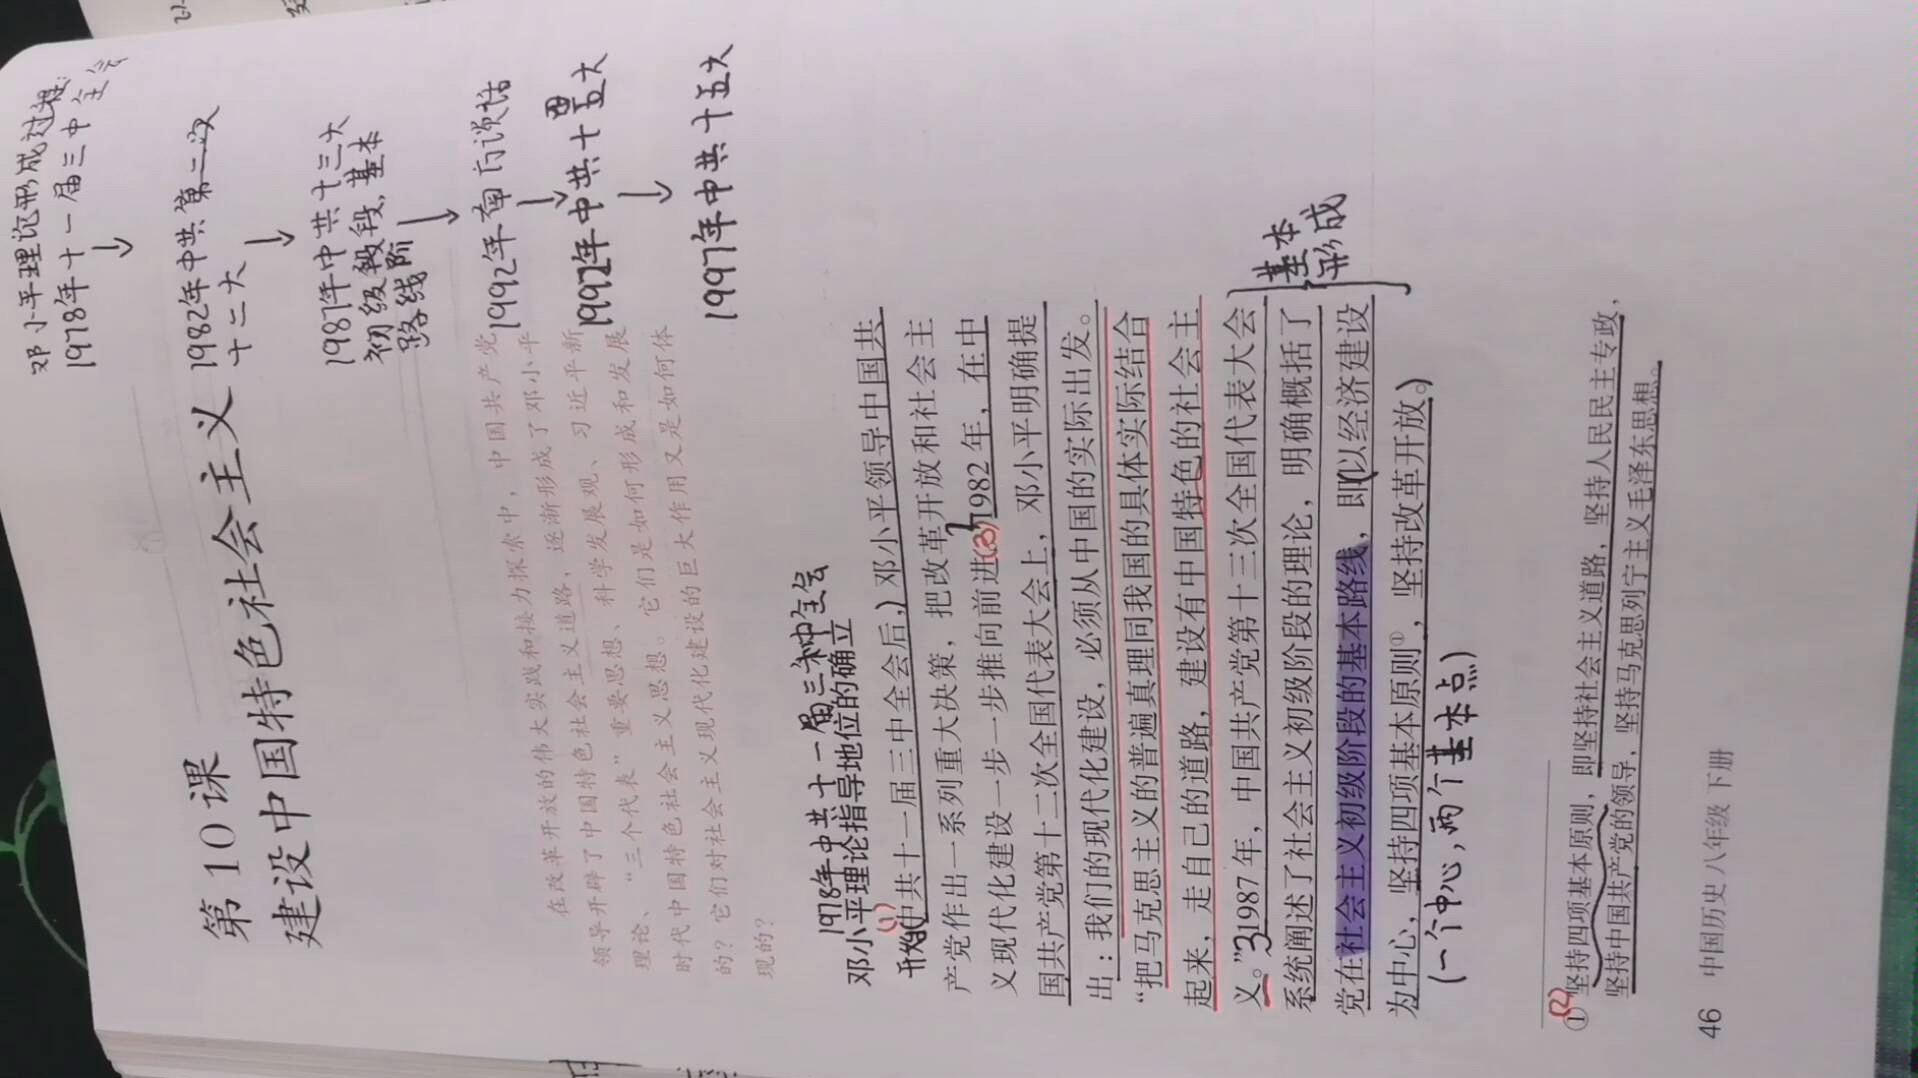 邓小平理论形成过程:
1978年十一届三中全会
↓
1982年中共第二次
十二大
↓
1987年中共十三大
初级段段,基本
路线 阶
↓
1992年南方谈话
↓
1992年中共十四大
↓
1997年中共十五大
第10课
建设中国特色社会主义
在改革开放的伟大实践和接力探索中,中国共产党
领导开辟了中国特色社会主义道路,逐渐形成了邓小平
理论、“三个代表”重要思想、科学发展观、习近平新
时代中国特色社会主义思想。它们是如何形成和发展
的?它们对社会主义现代化建设的巨大作用又是如何体
现的?
1978年中共十一届三种全会
邓小平理论指导地位的确立
开始(1)中共十一届三中全会后,)邓小平领导中国共
产党作出一系列重大决策,把改革开放和社会主
义现代化建设一步一步推向前进。(3)1982年,在中
国共产党第十二次全国代表大会上,邓小平明确提
出:我们的现代化建设,必须从中国的实际出发。
“把马克思主义的普遍真理同我国的具体实际结合
起来,走自己的道路,建设有中国特色的社会主
义。”31987年,中国共产党第十三次全国代表大会
系统阐述了社会主义初级阶段的理论,明确概括了
党在社会主义初级阶段的基本路线,即(以经济建设
为中心,坚持四项基本原则①,坚持改革开放。)
}基本
形成
(一个中心,两个基本点)
(2)
①坚持四项基本原则,即坚持社会主义道路,坚持人民民主专政,
坚持中国共产党的领导,坚持马克思列宁主义毛泽东思想。
46 中国历史八年级 下册